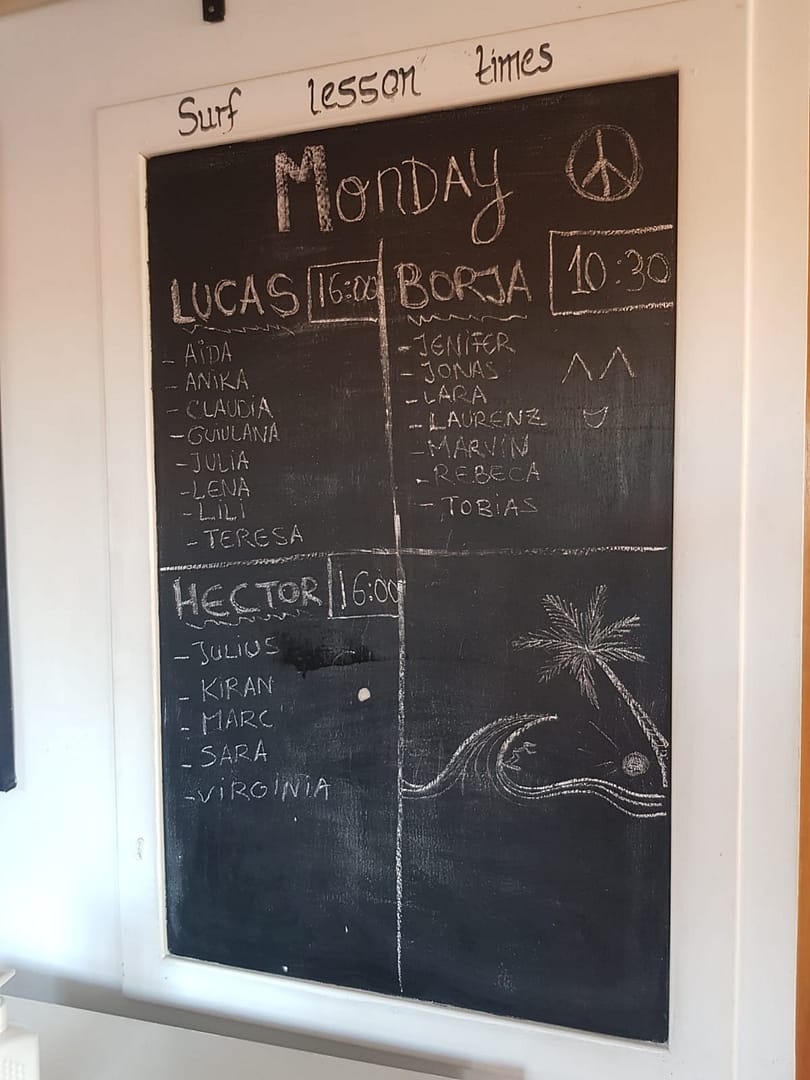 Surf lesson times
Monday
LUCAS 16:00
- AiDA
- ANiKA
- CLAUDiA
- GUIULANA
- JULiA
- LENA
- LiLi
- TERESA
BORJA 10:30
- JENiFER
- JONAS
- LARA
- LAURENZ
- MARViN
- REBECA
- TOBiAS
HECTOR 16:00
- JULiUS
- KiRAN
- MARC
- SARA
- ViRGiNiA